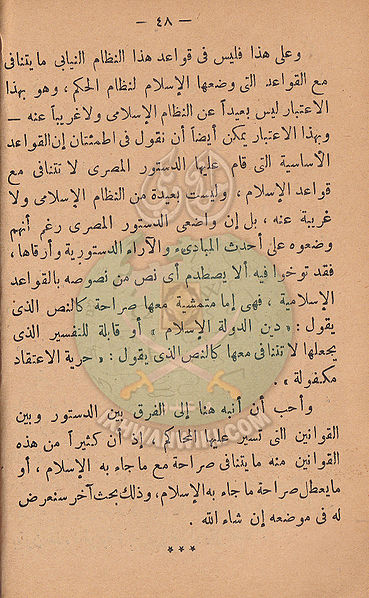 — ٤٨ —
وعلى هذا فليس فى قواعد هذا النظام النيابى ما يتنافى
مع القواعد التى وضعها الإسلام لنظام الحكم، وهو بهذا
الاعتبار ليس بعيداً عن النظام الإسلامى ولا غريباً عنه —
وبهذا الاعتبار يمكن أيضاً أن نقول فى اطمئنان إن القواعد
الأساسية التى قام عليها الدستور المصرى لا تتنافى مع
قواعد الإسلام، وليست بعيدة من النظام الإسلامى ولا
غريبة عنه، بل إن واضعى الدستور المصرى رغم أنهم
وضعوه على أحدث المبادىء والآراء الدستورية وأرقاها،
فقد توخوا فيه ألا يصطدم أى نص من نصوصه بالقواعد
الإسلامية، فهى إما متمشية معها صراحة كالنص الذى
يقول: «دين الدولة الإسلام» أو قابلة للتفسير الذى
يجعلها لا تتنافى معها كالنص الذى يقول: «حرية الاعتقاد
مكفولة».
وأحب أن أنبه هنا إلى الفرق بين الدستور وبين
القوانين التى تسير عليها المحاكم إذ أن كثيراً من هذه
القوانين منه ما يتنافى صراحة مع ما جاء به الإسلام، أو
ما يعطل صراحة ما جاء به الإسلام، وذلك بحث آخر سنعرض
له فى موضعه إن شاء الله.
***
IKHWANWIKI.COM